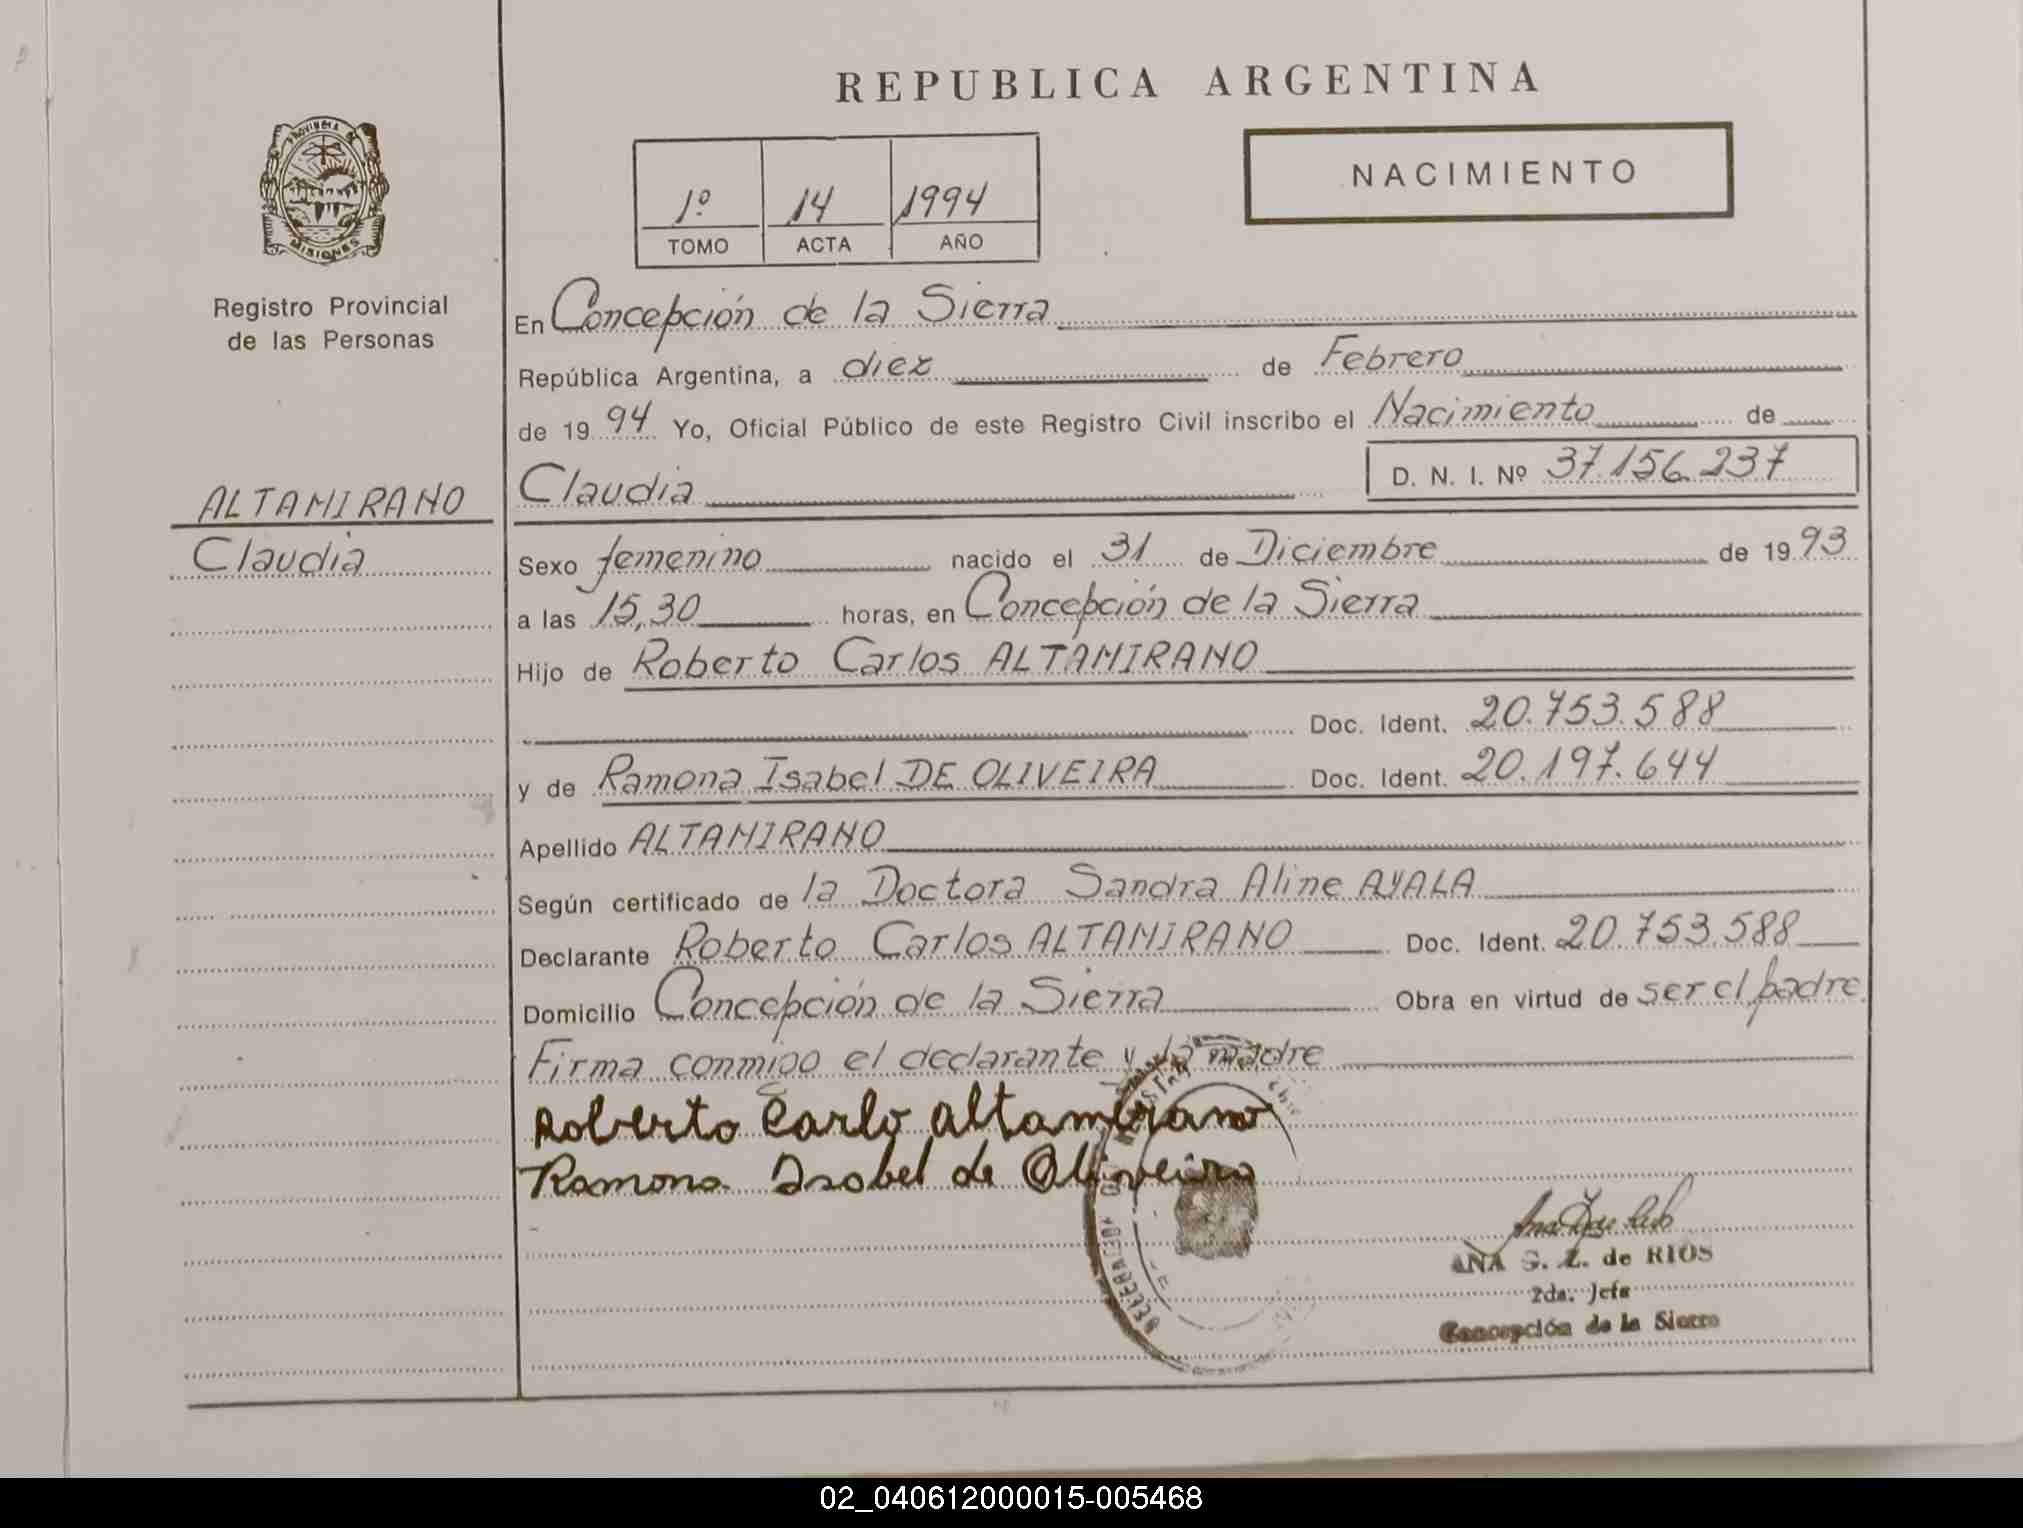 REPUBLICA ARGENTINA
PROVINCIA DE
MISIONES
Registro Provincial
de las Personas
1º 14 1994
TOMO ACTA AÑO
NACIMIENTO
En Concepción de la Sierra
República Argentina, a diez de Febrero
de 19 94 Yo, Oficial Público de este Registro Civil inscribo el Nacimiento de
Claudia D. N. I. Nº 37.156.237
ALTAMIRANO
Claudia
Sexo femenino nacido el 31 de Diciembre de 19 93
a las 15,30 horas, en Concepción de la Sierra
Hijo de Roberto Carlos ALTAMIRANO
Doc. Ident. 20.753.588
y de Ramona Isabel DE OLIVEIRA Doc. Ident. 20.197.644
Apellido ALTAMIRANO
Según certificado de la Doctora Sandra Aline AYALA
Declarante Roberto Carlos ALTAMIRANO Doc. Ident. 20.753.588
Domicilio Concepción de la Sierra Obra en virtud de ser el padre
Firma conmigo el declarante y la madre
Roberto Carlo altamirano
Ramona Isabel de Oliveira
ANA G. Z. de RIOS
2da. Jefe
Concepción de la Sierra
02_040612000015-005468